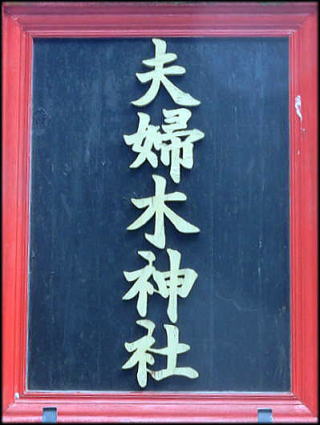 夫婦木神社